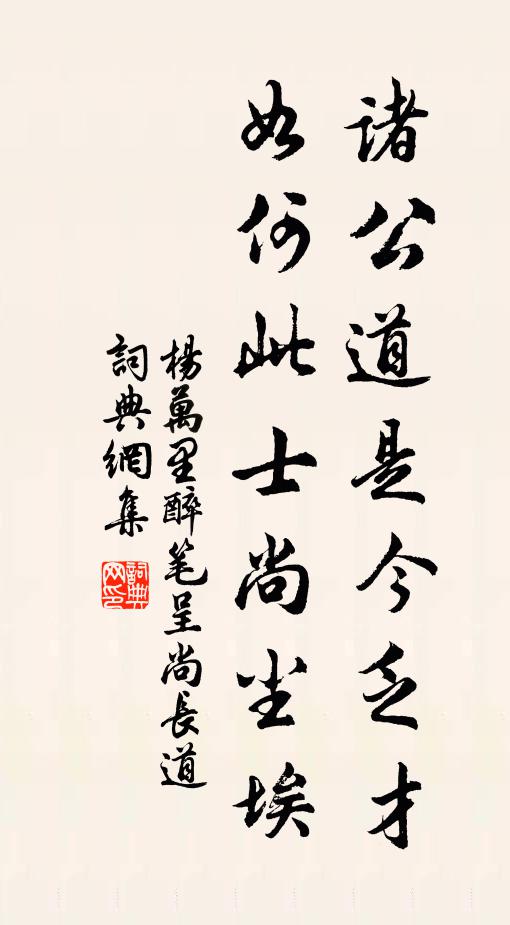 諸公道是今乏才
如何此士尚尘埃
楊萬里醉笔呈尚長道
詞典網集
詞典
网印